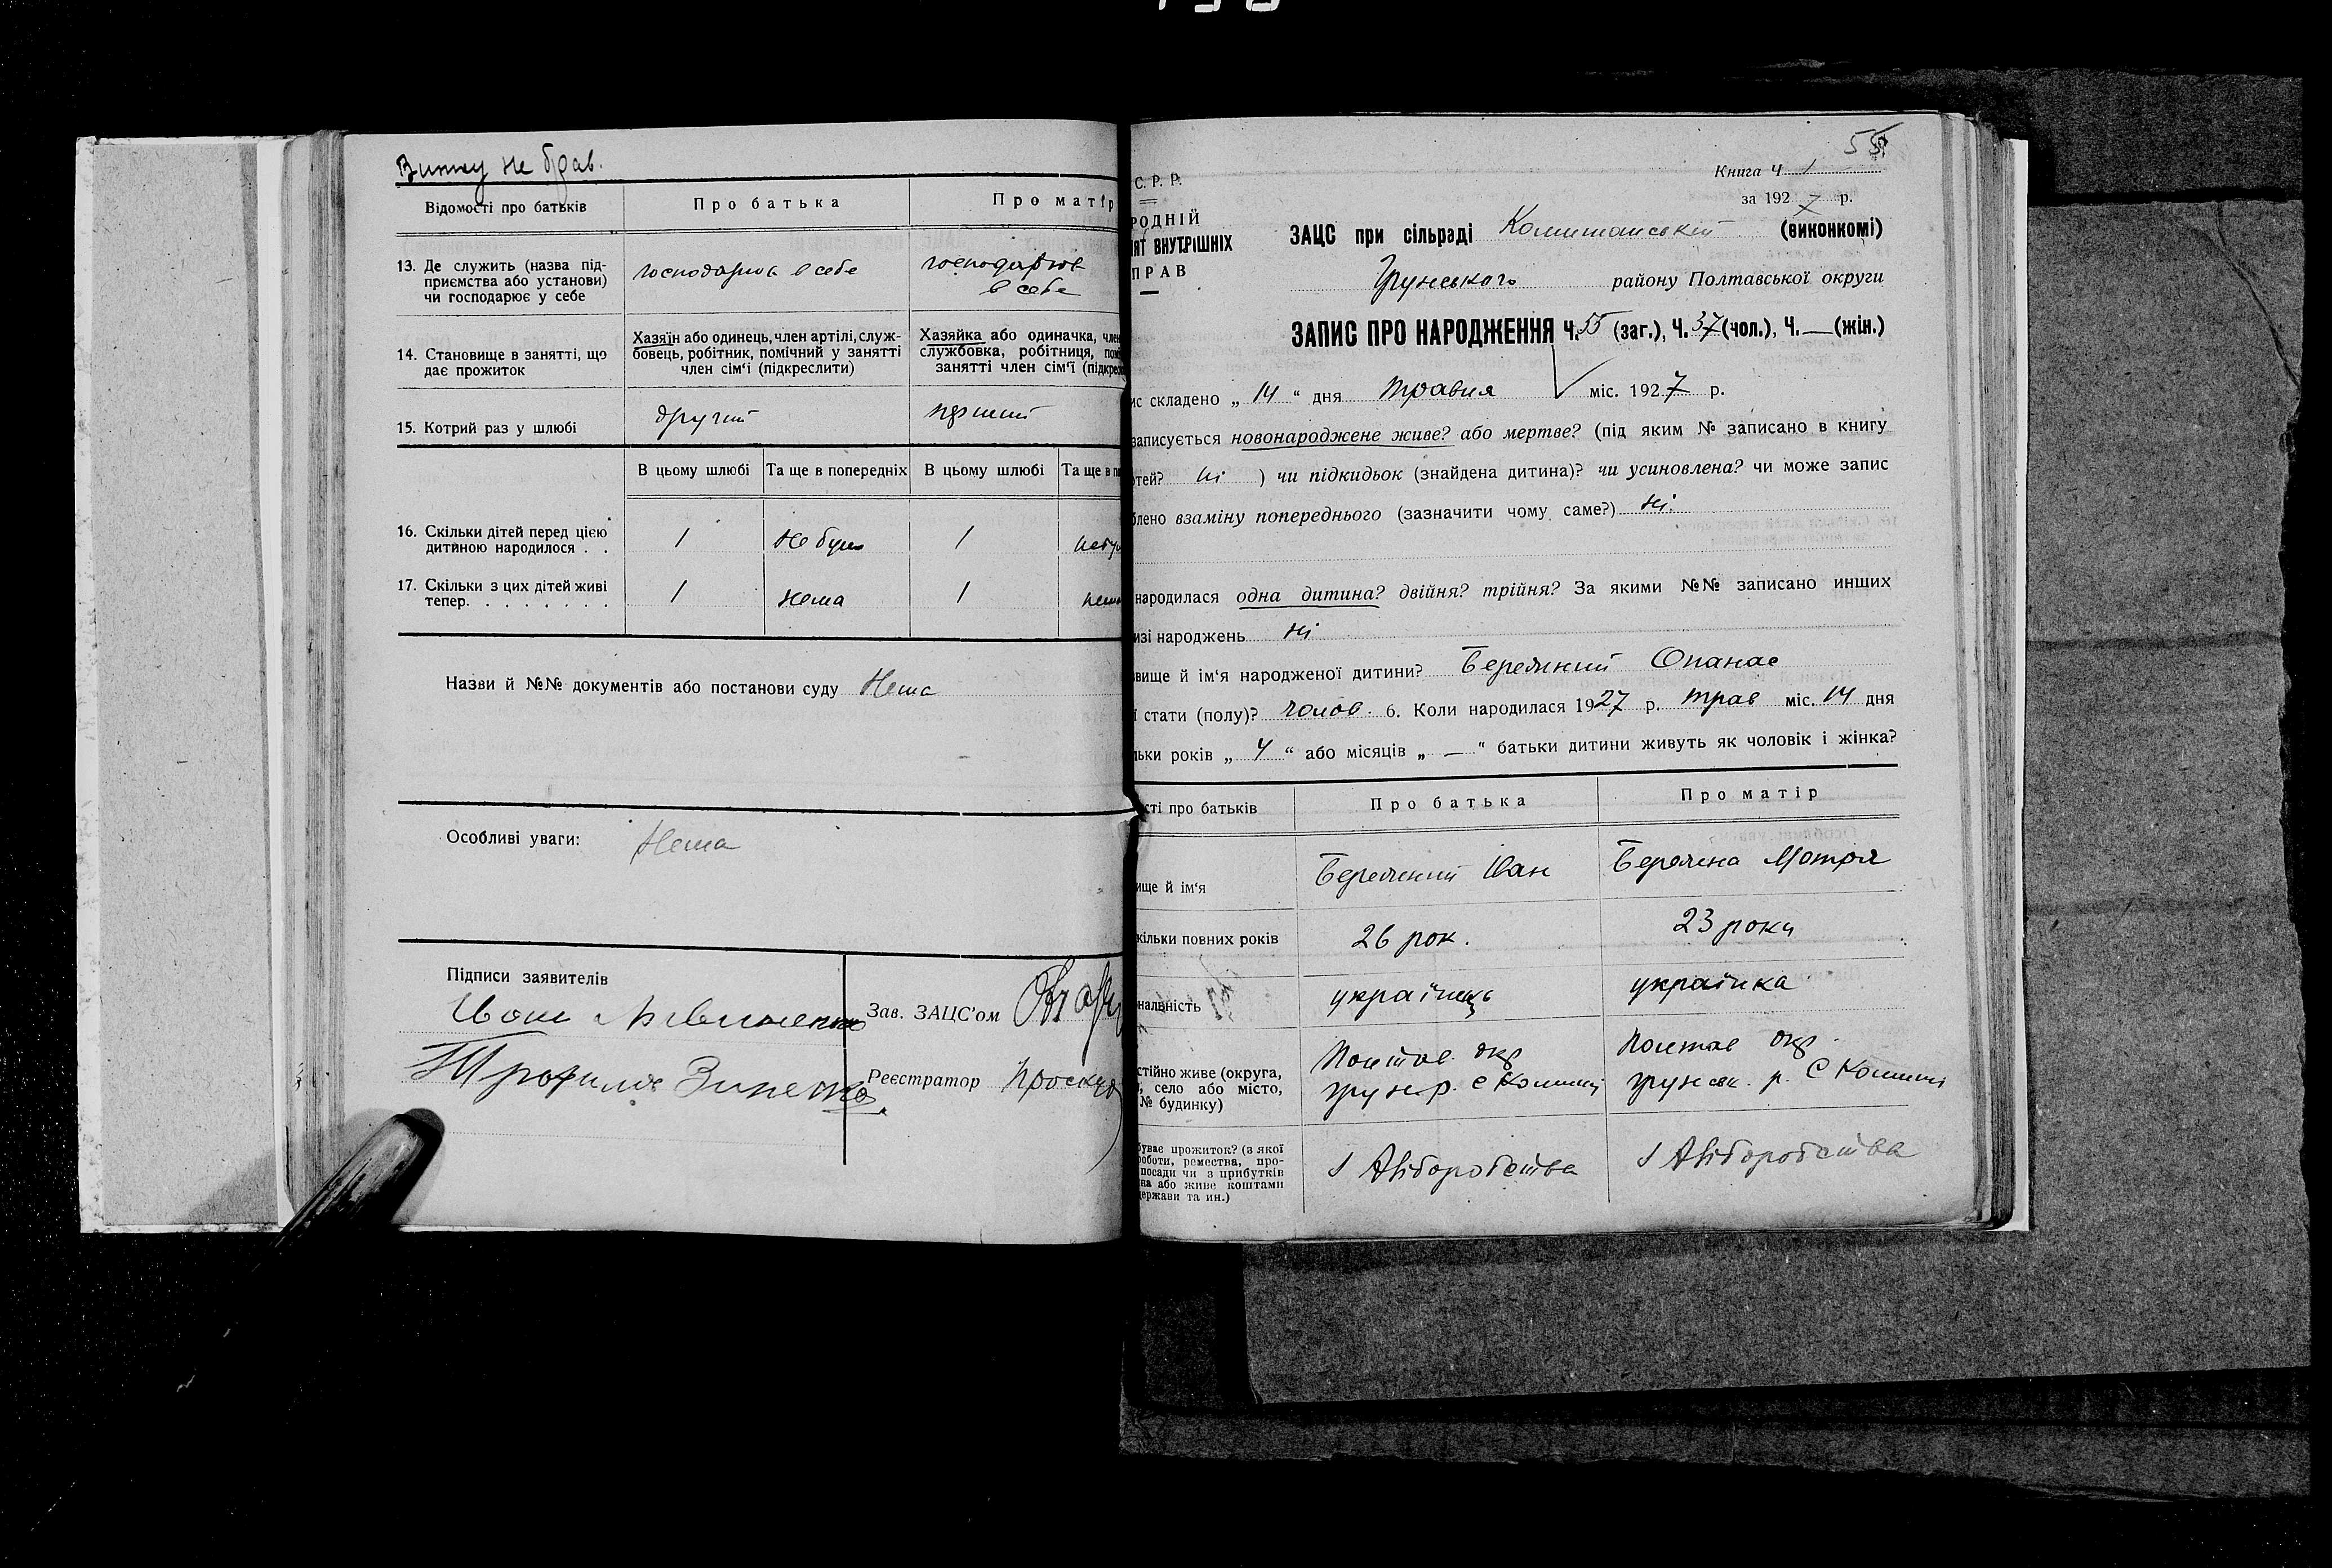 Витягу не брав.
Відомості про батьків
Про батька
Про матір
13. Де служить (назва під-
приємства або установи)
чи господарює у себе
господарює в себе
господарює
в себе
14. Становище в занятті, що
дає прожиток
Хазяїн або одинець, член артілі, служ-
бовець, робітник, помічний у занятті
член сім'ї (підкреслити)
Хазяйка або одиначка, член
службовка, робітниця, пом
занятті член сім'ї (підкрес
15. Котрий раз у шлюбі
другий
перший
В цьому шлюбі
Та ще в попередніх
В цьому шлюбі
Та ще в п
16. Скільки дітей перед цією
дитиною народилося . .
1
Не було
1
небул
17. Скільки з цих дітей живі
тепер. . . . . . . .
1
нема
1
нема
Назви й №№ документів або постанови суду Нема
Особливі уваги: Нема
Підписи заявителів
Зав. ЗАЦС'ом
Іван Литвиненко
Реєстратор
Трофим
55
Книга Ч 1
С. Р. Р.
за 1927 р.
РОДНІЙ
ЯТ ВНУТРІШНІХ
ПРАВ
ЗАЦС при сільраді Комишанській (виконкомі)
Грунського району Полтавської округи
ЗАПИС ПРО НАРОДЖЕННЯ Ч. 55 (заг.), Ч. 37 (чол.), Ч. — (жін.)
ис складено „ 14 “ дня травня міс. 1927 р.
записується новонароджене живе? або мертве? (під яким № записано в книгу
тей? ні ) чи підкидьок (знайдена дитина)? чи усиновлена? чи може запис
блено взаміну попереднього (зазначити чому саме?) ні.
народилася одна дитина? двійня? трійня? За якими №№ записано инших
изі народжень ні
вище й ім'я народженої дитини? Бережний Опанас
ї стати (полу)? чолов. 6. Коли народилася 1927 р. трав міс. 14 дня
льки років „ 4 “ або місяців „ — “ батьки дитини живуть як чоловік і жінка?
сті про батьків
Про батька
Про матір
ище й ім'я
Бережний Іван
Бережна Мотря
кільки повних років
26 рок.
23 роки
нальність
українець
українка
стійно живе (округа,
, село або місто,
№ будинку)
Полтав. окр
грун. р. с Комиші
Полтав окр.
грунськ. р. С Комиші
буває прожиток? (з якої
роботи, ремества, про-
посади чи з прибутків
на або живе коштами
держави та ин.)
з хліборобства
з хліборобства